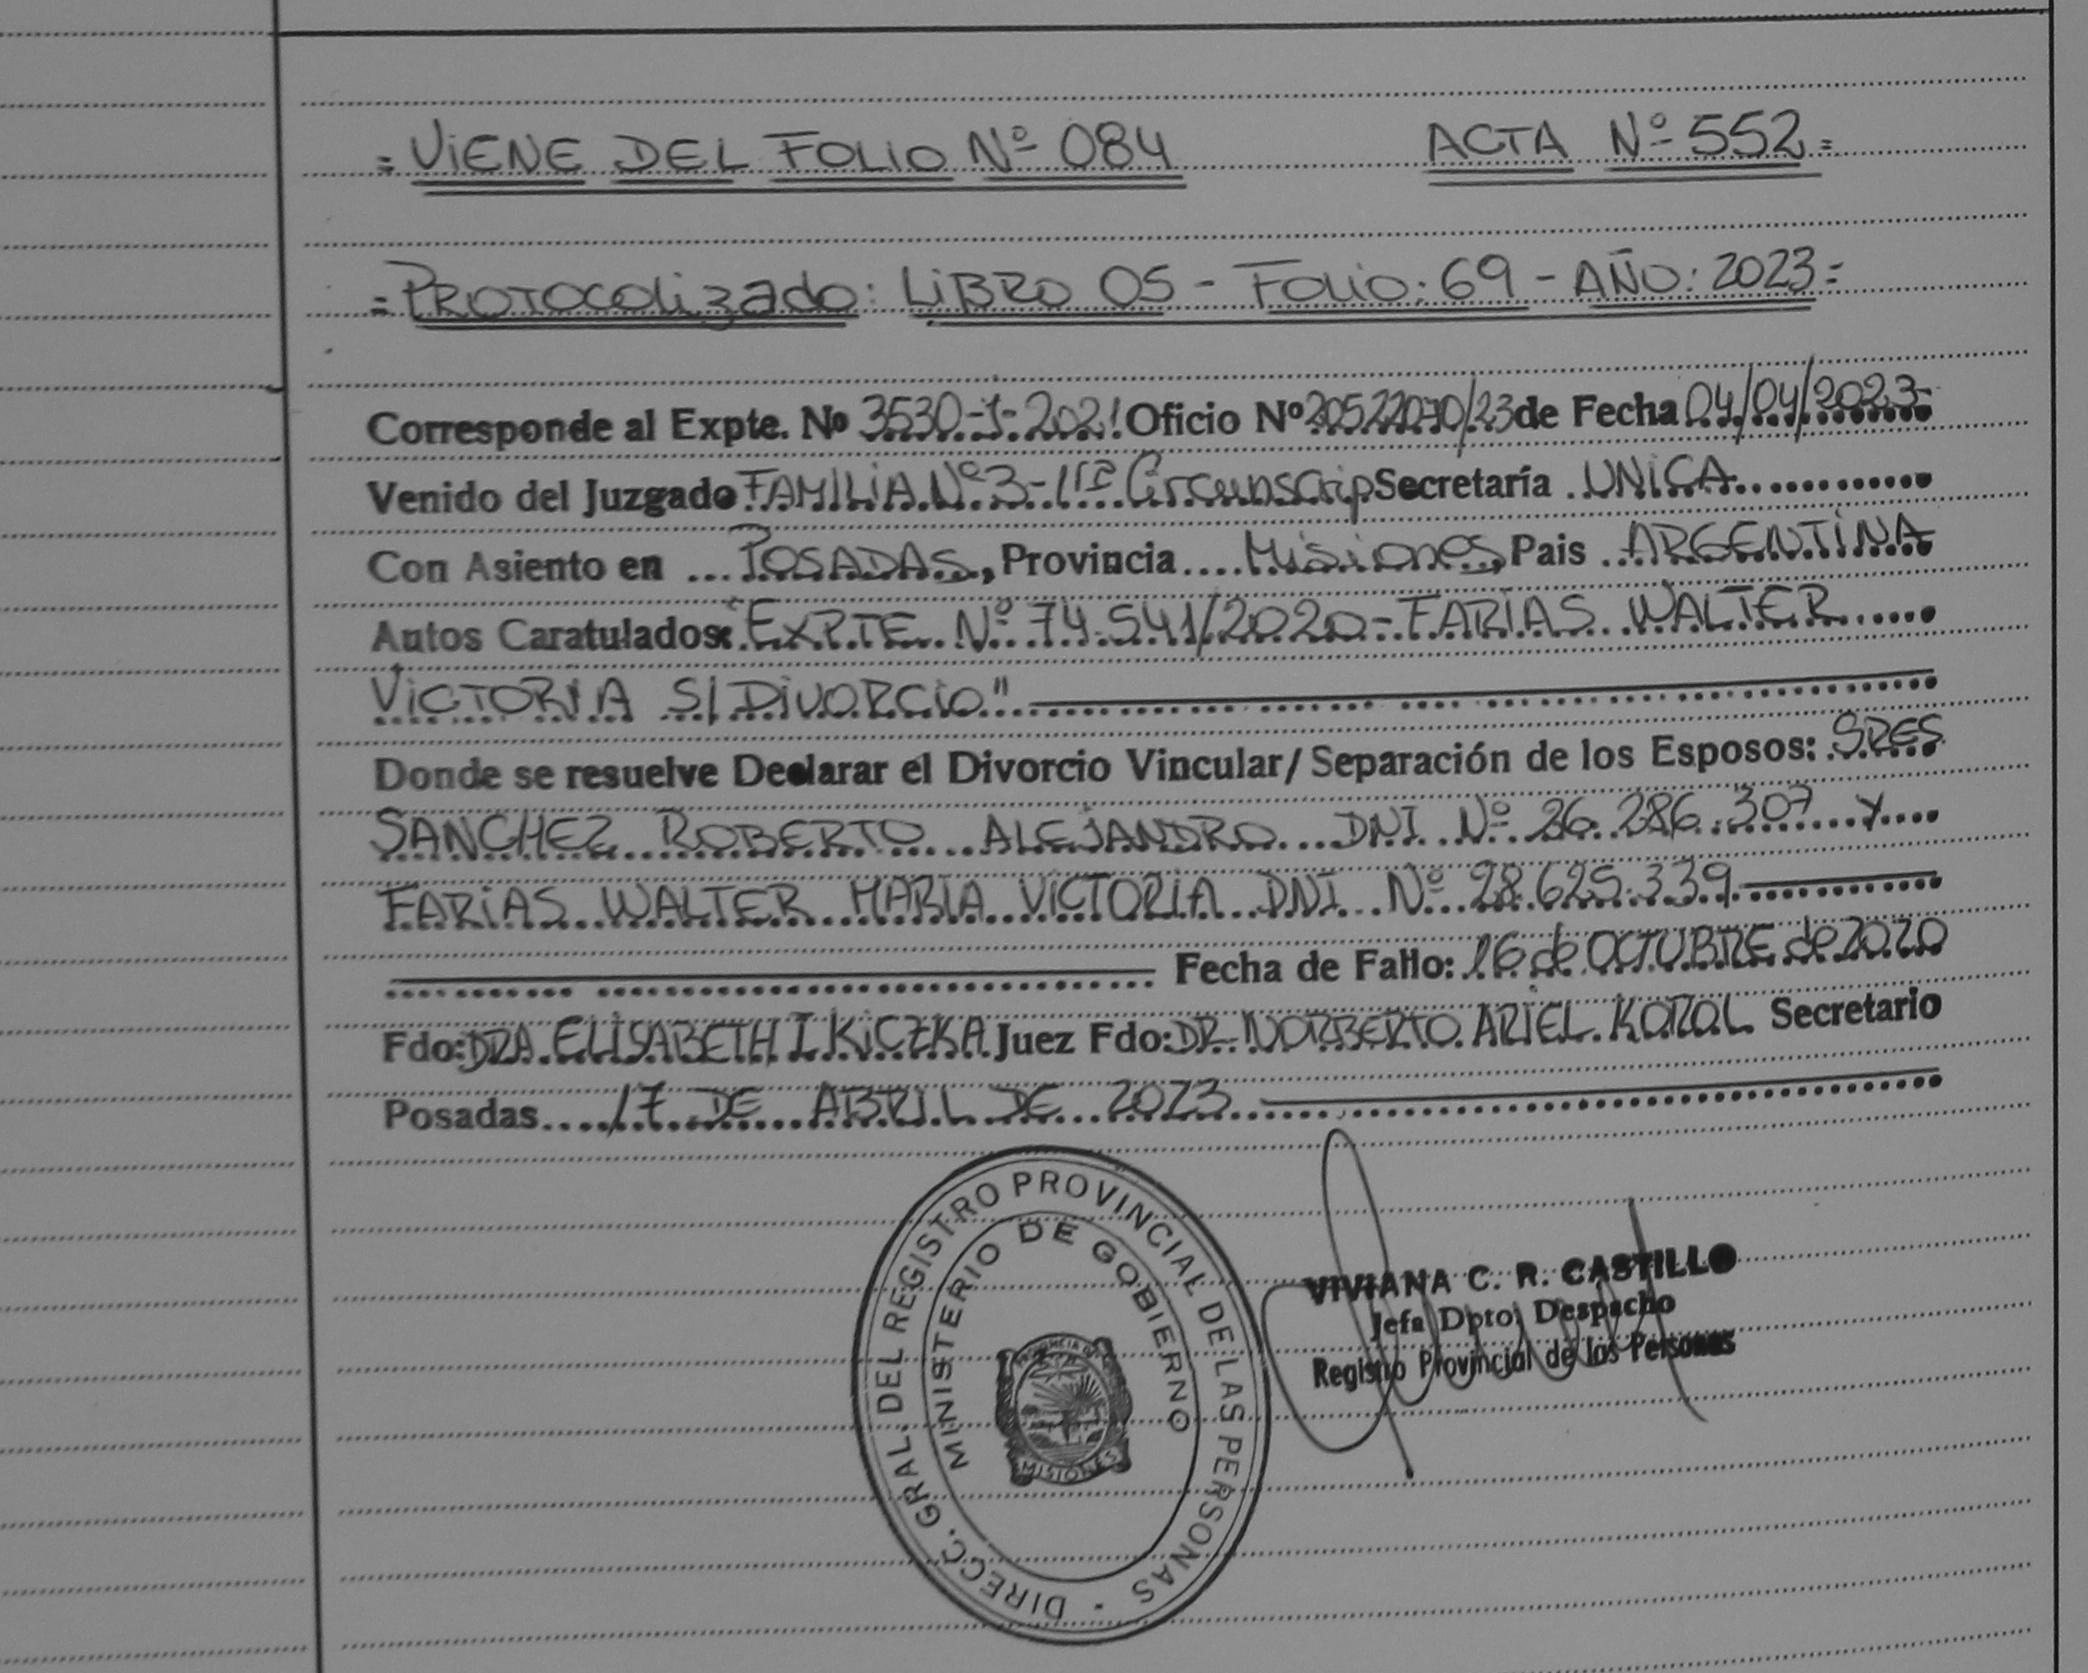 = VIENE DEL FOLIO Nº 084 ACTA Nº 552 =
= PROTOCOLIZADO: LIBRO 05 - FOLIO: 69 - AÑO: 2023 =
Corresponde al Expte. Nº 3530-1-2021 Oficio Nº 20522070/23 de Fecha 04/04/2023-
Venido del Juzgado FAMILIA Nº 3 - Circunscrip Secretaría UNICA
Con Asiento en POSADAS, Provincia Misiones, Pais ARGENTINA
Autos Caratulados: "EXPTE Nº 74.541/2020 - FARIAS WALTER
VICTORIA S/ DIVORCIO"
Donde se resuelve Declarar el Divorcio Vincular/ Separación de los Esposos: SRES
SANCHEZ ROBERTO ALEJANDRO DNI Nº 26.286.307 y
FARIAS WALTER MARIA VICTORIA DNI Nº 28.625.339
Fecha de Fallo: 16 de OCTUBRE de 2020
Fdo: DRA. ELISABETH I KICZKA Juez Fdo: DR. NORBERTO ARIEL KOROL Secretario
Posadas 17 DE ABRIL DE 2023
DIRECC. GRAL. DEL REGISTRO PROVINCIAL DE LAS PERSONAS -
MINISTERIO DE GOBIERNO
PROVINCIA DE
MISIONES
VIVIANA C. R. CASTILLO
Jefa Dpto. Despacho
Registro Provincial de las Personas